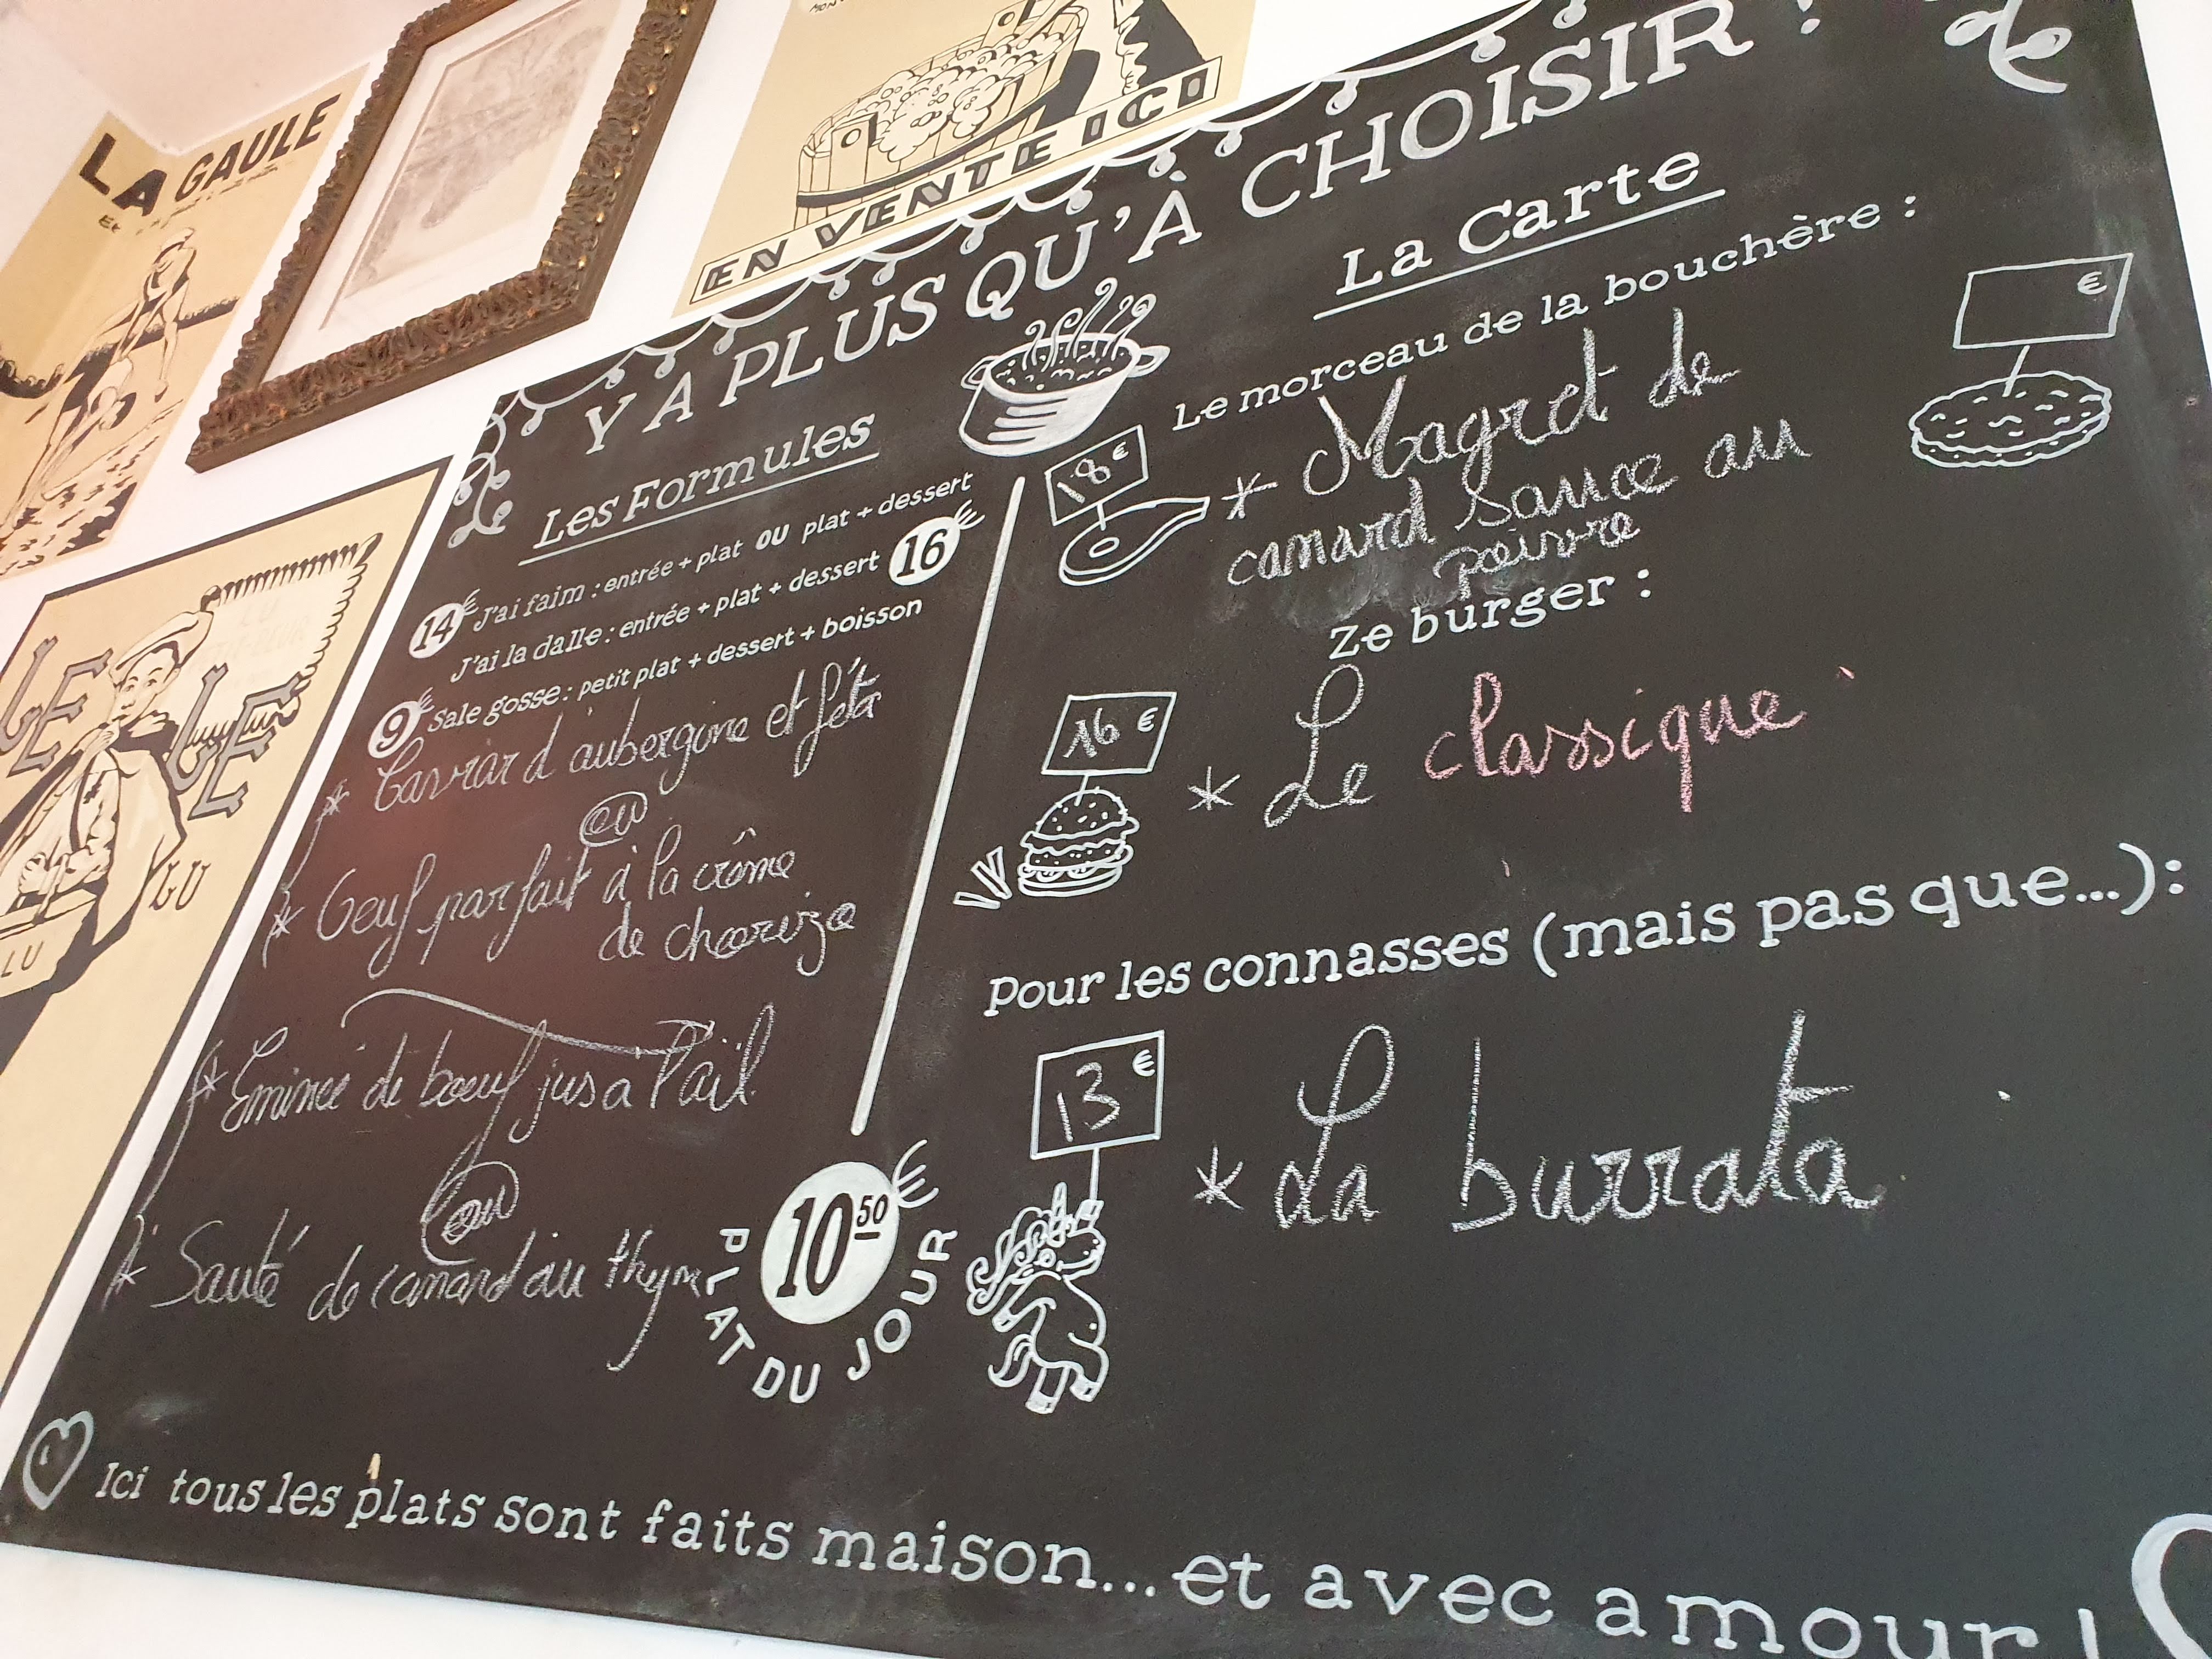 LA GAULE
EN VENTE ICI
LE
LE
LU
LU
Y A PLUS QU'À CHOISIR !
Les Formules
14€ J'ai faim : entrée + plat OU plat + dessert
J'ai la dalle : entrée + plat + dessert 16€
9€ Sale gosse : petit plat + dessert + boisson
* Caviar d'aubergine et féta
ou
* Oeuf parfait à la crème
de chorizo
* Émincé de boeuf jus à l'ail
ou
* Sauté de canard au thym
10 50 €
PLAT DU JOUR
La Carte
Le morceau de la bouchère :
€
18 €
* Magret de
canard sauce au
poivre
Ze burger :
16 €
* Le classique
Pour les connasses (mais pas que...) :
13 €
* La burrata
Ici tous les plats sont faits maison... et avec amour !